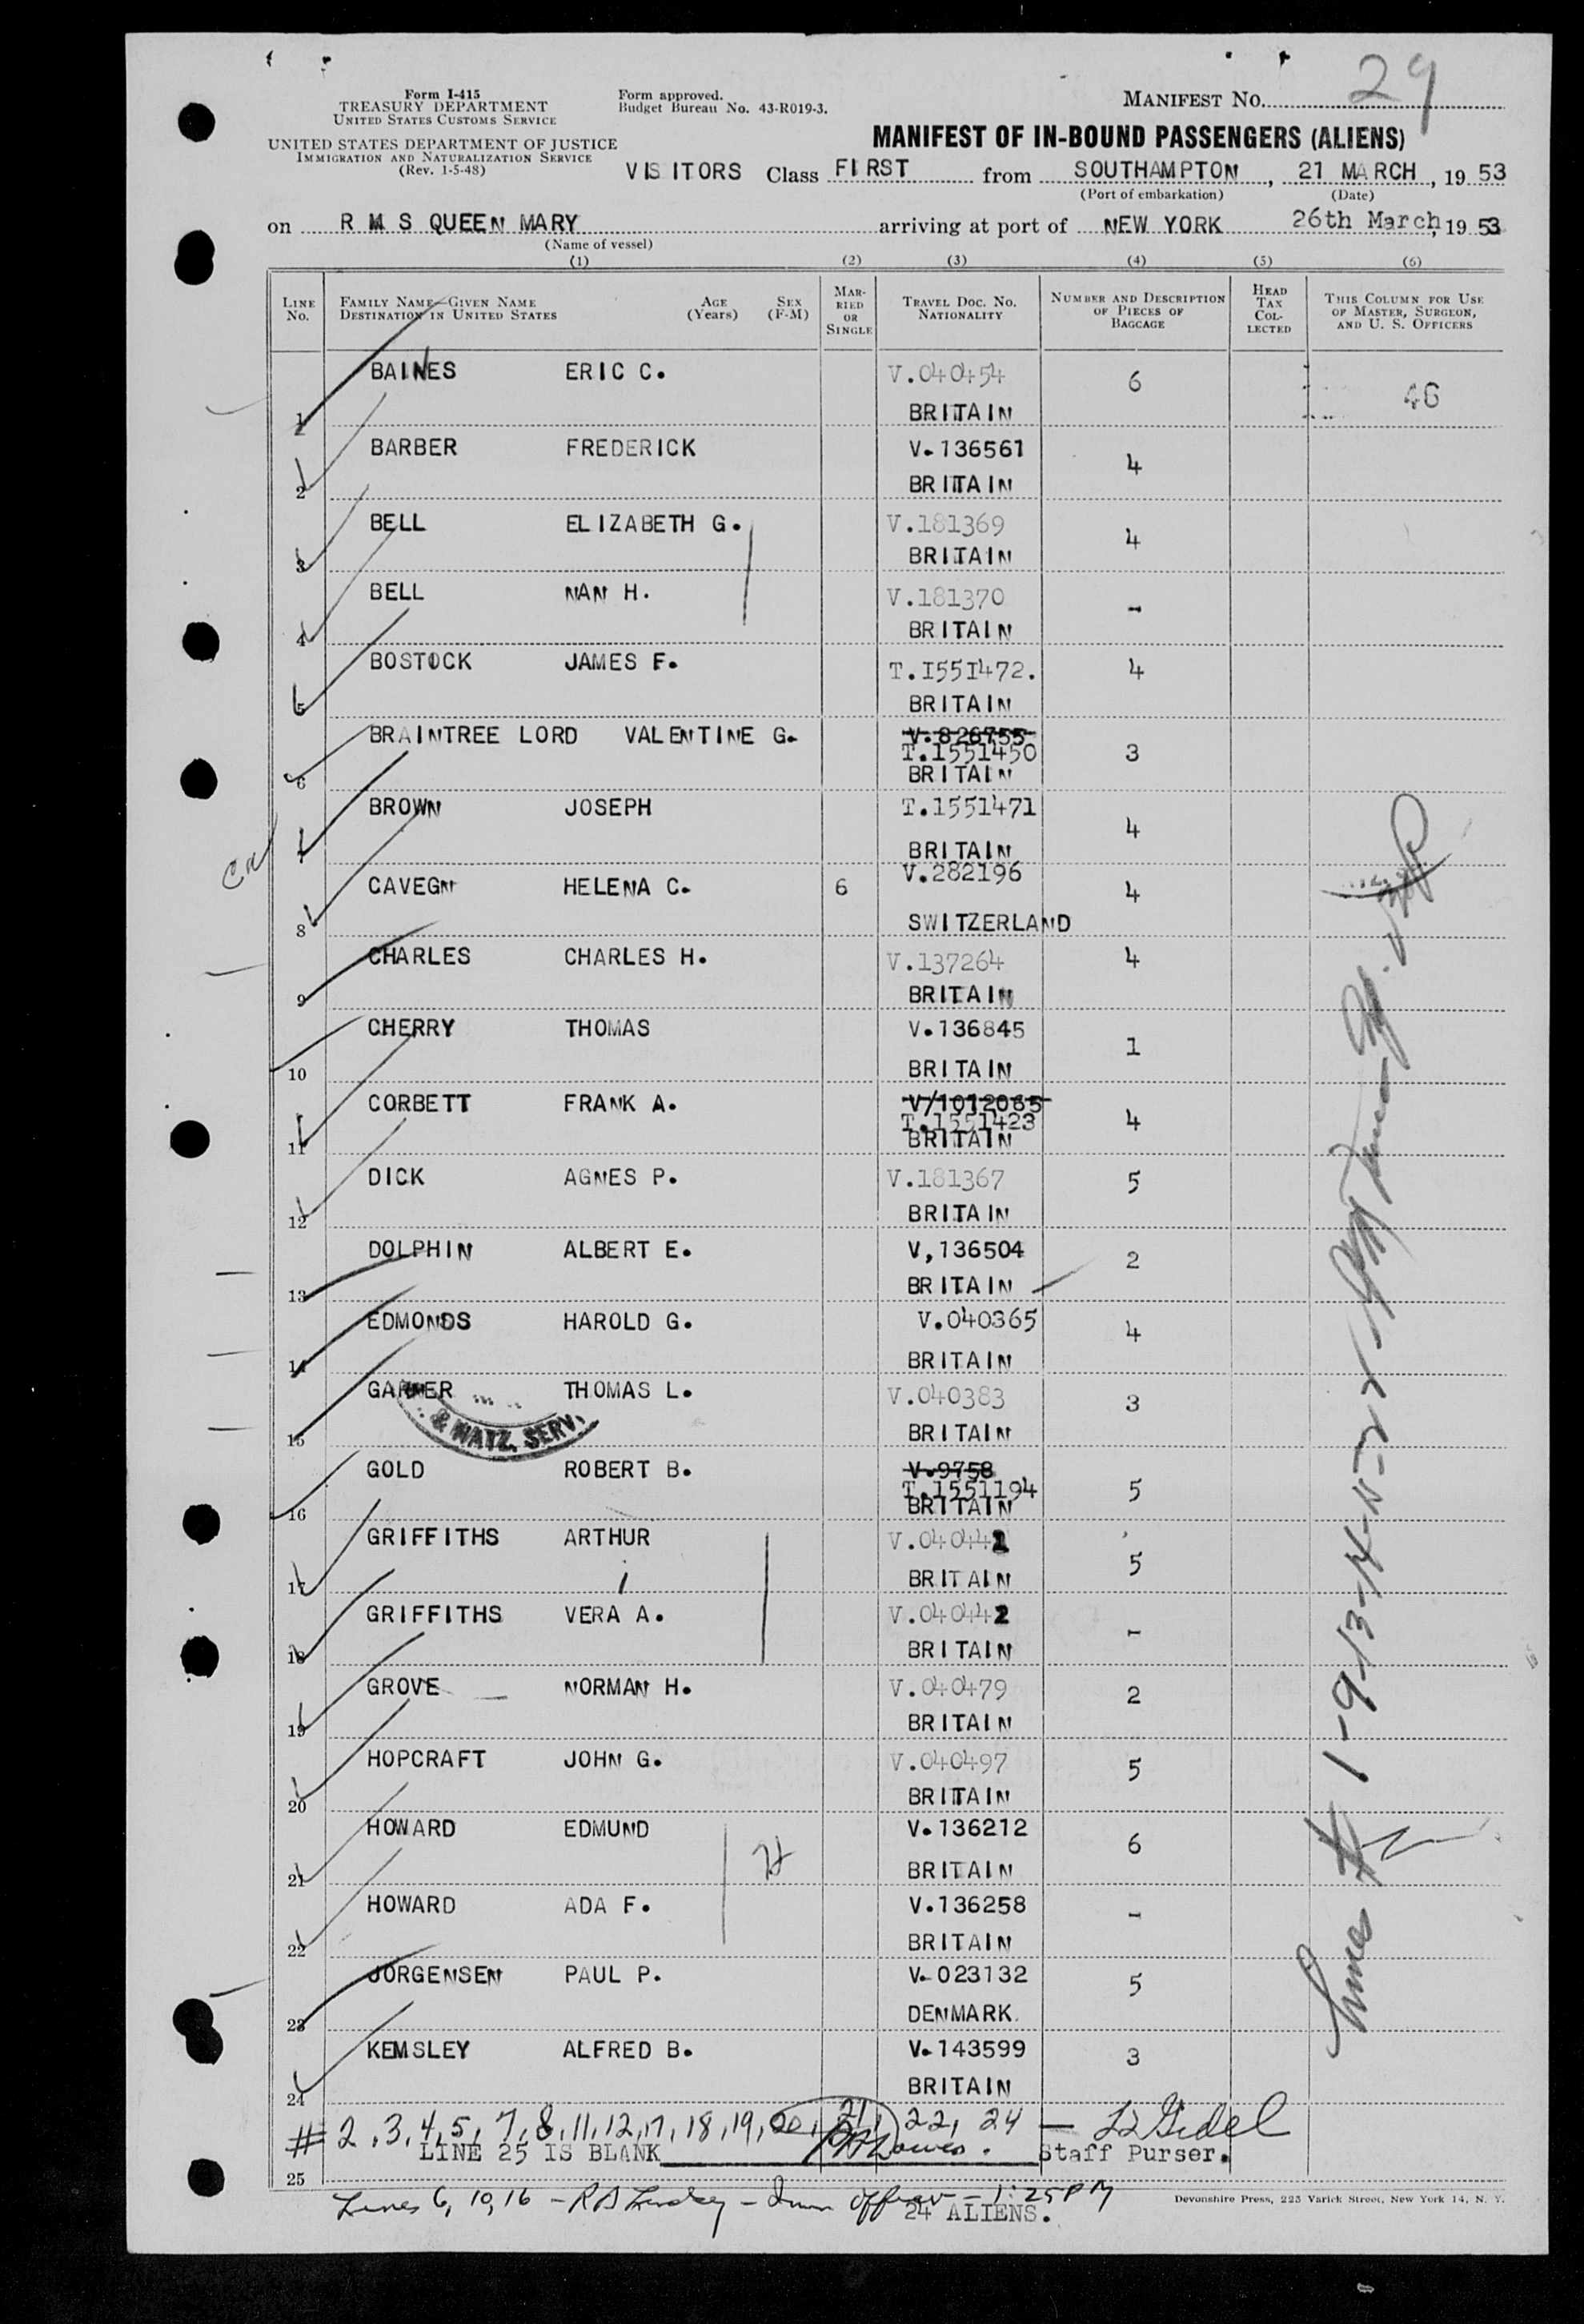 29
Form I-415
TREASURY DEPARTMENT
UNITED STATES CUSTOMS SERVICE
Form approved.
Budget Bureau No. 43-R019-3.
MANIFEST NO.
UNITED STATES DEPARTMENT OF JUSTICE
IMMIGRATION AND NATURALIZATION SERVICE
(Rev. 1-5-48)
MANIFEST OF IN-BOUND PASSENGERS (ALIENS)
VISITORS Class FIRST from SOUTHAMPTON, 21 MARCH, 19 53
(Port of embarkation) (Date)
on R M S QUEEN MARY arriving at port of NEW YORK 26th March, 19 53
(Name of vessel)
(1) (2) (3) (4) (5) (6)
LINE NO. FAMILY NAME—GIVEN NAME DESTINATION IN UNITED STATES AGE (Years) SEX (F-M) MARRIED OR SINGLE TRAVEL DOC. NO. NATIONALITY NUMBER AND DESCRIPTION OF PIECES OF BAGGAGE HEAD TAX COLLECTED THIS COLUMN FOR USE OF MASTER, SURGEON, AND U. S. OFFICERS
BAINES ERIC C. V.040454 6 46
1 BRITAIN
BARBER FREDERICK V.136561 4
2 BRITAIN
BELL ELIZABETH G. V.181369 4
3 BRITAIN
BELL NAN H. V.181370 -
4 BRITAIN
BOSTOCK JAMES F. T.1551472. 4
5 BRITAIN
BRAINTREE LORD VALENTINE G. V.826755
T.1551450 3
6 BRITAIN
BROWN JOSEPH T.1551471 4
7 BRITAIN
CAVEGN HELENA C. 6 V.282196 4
8 SWITZERLAND
CHARLES CHARLES H. V.137264 4
9 BRITAIN
CHERRY THOMAS V.136845 1
10 BRITAIN
CORBETT FRANK A. V/1012065
T.1551423 4
11 BRITAIN
DICK AGNES P. V.181367 5
12 BRITAIN
DOLPHIN ALBERT E. V,136504 2
13 BRITAIN
EDMONDS HAROLD G. V.040365 4
14 BRITAIN
GARNER THOMAS L. V.040383 3
& NATZ. SERV.
15 BRITAIN
GOLD ROBERT B. V.9758
T.1551194 5
16 BRITAIN
GRIFFITHS ARTHUR V.040441 5
17 BRITAIN
GRIFFITHS VERA A. V.040442 -
18 BRITAIN
GROVE NORMAN H. V.040479 2
19 BRITAIN
HOPCRAFT JOHN G. V.040497 5
20 BRITAIN
HOWARD EDMUND V.136212 6
21 BRITAIN
HOWARD ADA F. V.136258 -
22 BRITAIN
JORGENSEN PAUL P. V.023132 5
23 DENMARK.
KEMSLEY ALFRED B. V.143599 3
24 BRITAIN
# 2, 3, 4, 5, 7, 8, 11, 12, 17, 18, 19, 20, 21, 22, 24 —
LINE 25 IS BLANK Staff Purser.
25
Lines 6, 10, 16 — Imm Officer — 1:25 PM
24 ALIENS.
Devonshire Press, 225 Varick Street, New York 14, N. Y.
Lines # 1-9-13-14-15-23